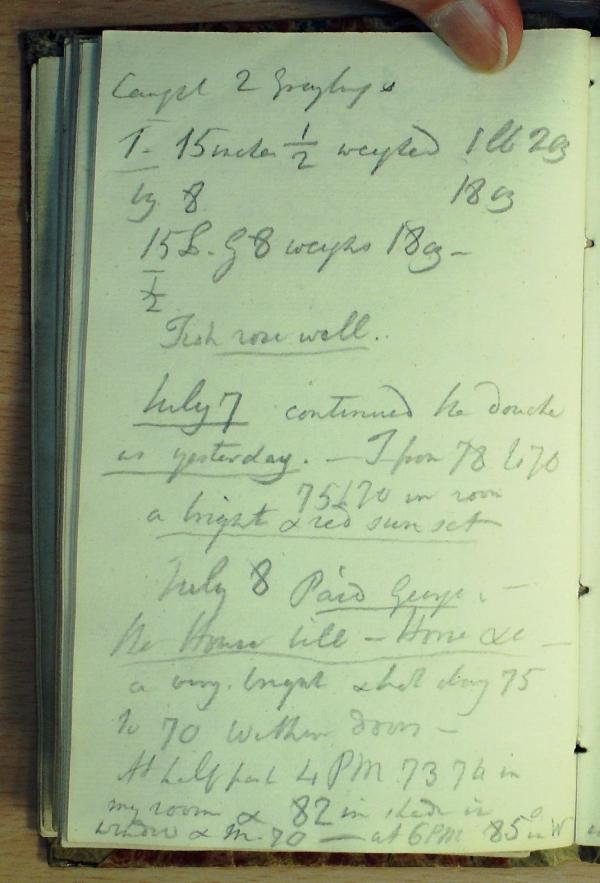 Caught 2 Graylings
1- 15 inches 1/2 weighed 1 lb 2 oz
by 8 18 oz
15 L. G 8 weighs 18 oz -
1/2
Fish rose well..
July 7 continued the douche
as yesterday. - T from 78 to 70
75 to 70 in room
a bright & red sun set
July 8 Paid George. -
the House bill - Horse &c -
a very bright & hot day 75
to 70 within doors -
At half past 4 PM. 73 74 in
my room & 82 in shade in
window & 70 - at 6 PM 85 in W